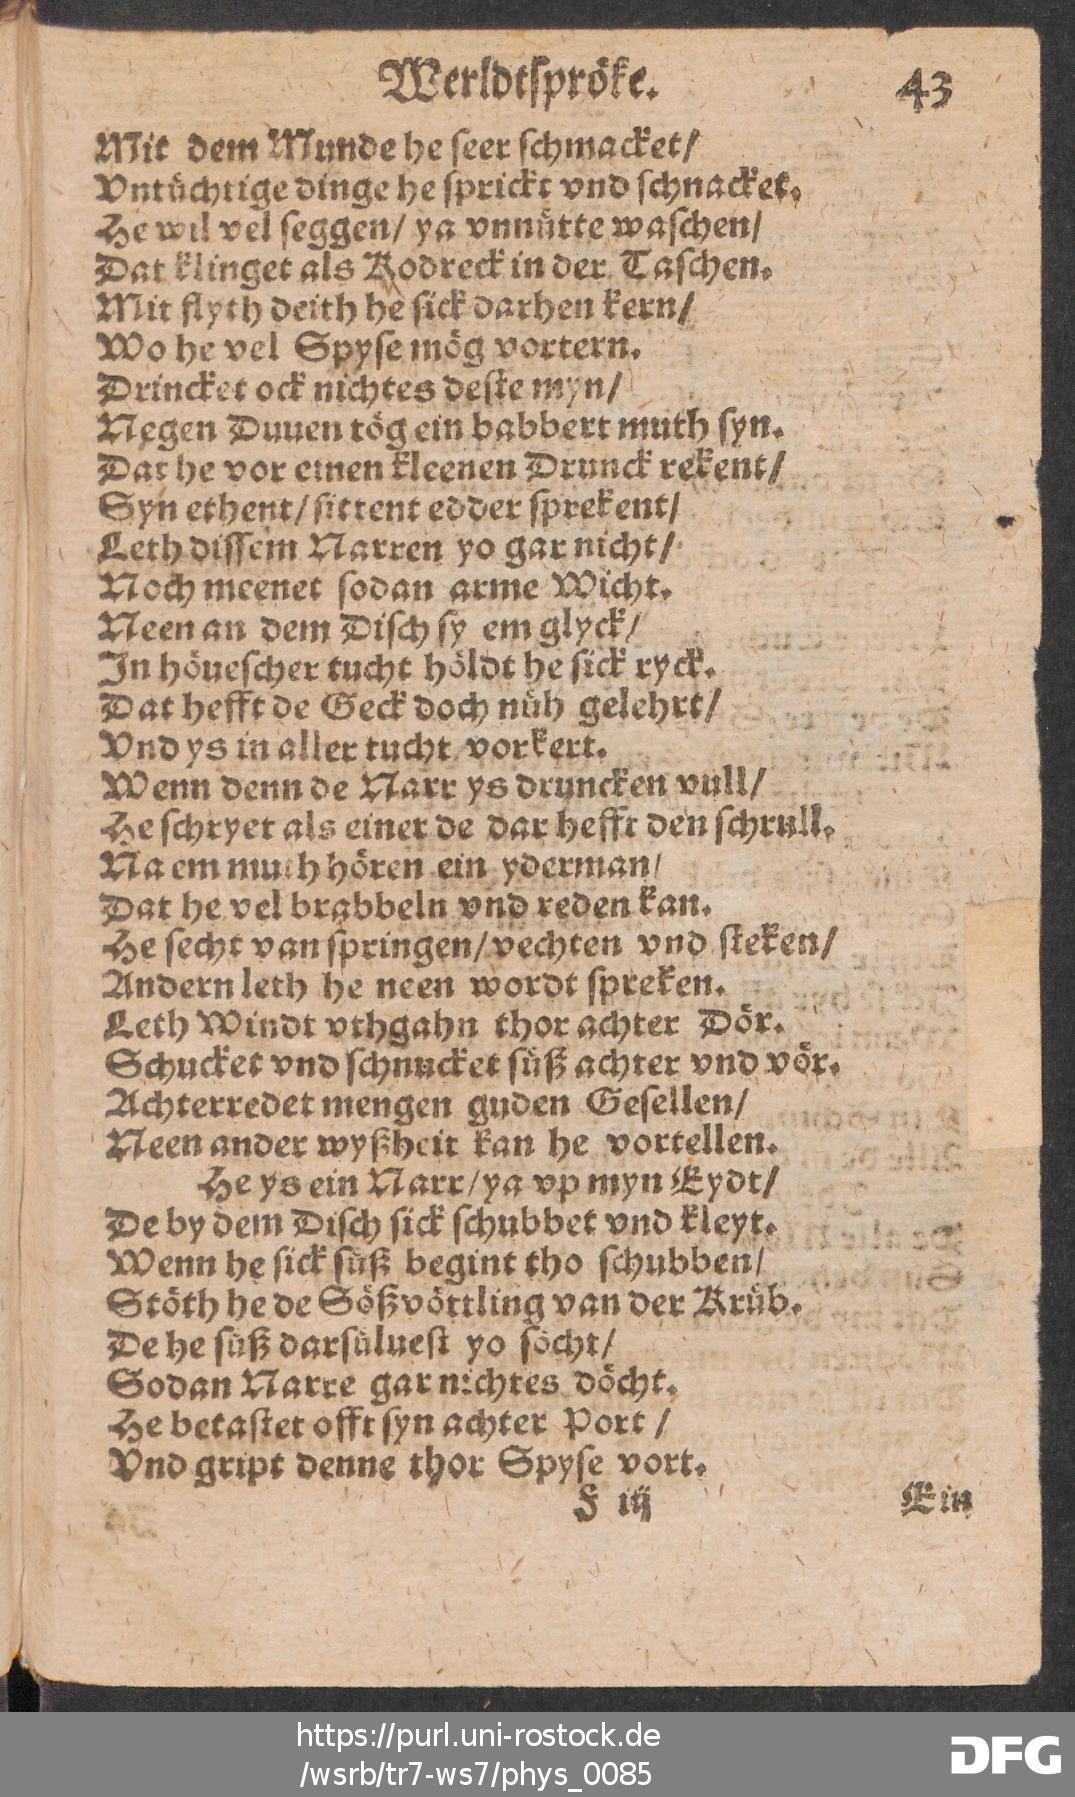 Werldtspröke. 43
Mit dem Munde he seer schmacket/
Vntüchtige dinge he sprickt vnd schnacket.
He wil vel seggen/ ya vnnütte waschen/
Dat klinget als Kodreck in der Taschen.
Mit flyth deith he sick darhen kern/
Wo he vel Spyse mög vortern.
Drincket ock nichtes deste myn/
Negen Duuen tög ein babbert muth syn.
Dat he vor einen kleenen Drunck rekent/
Syn ethent/ sittent edder sprekent/
Leth dissem Narren yo gar nicht/
Noch meenet sodan arme Wicht.
Neen an dem Disch sy em glyck/
In höuescher tucht höldt he sick ryck.
Dat hefft de Geck doch nüh gelehrt/
Vnd ys in aller tucht vorkert.
Wenn denn de Narr ys druncken vull/
He schryet als einer de dar hefft den schrull.
Na em muth hören ein yderman/
Dat he vel brabbeln vnd reden kan.
He secht van springen/ vechten vnd steken/
Andern leth he neen wordt spreken.
Leth Windt vthgahn thor achter Dör.
Schucket vnd schnucket süß achter vnd vör.
Achterredet mengen guden Gesellen/
Neen ander wyßheit kan he vortellen.
He ys ein Narr/ ya vp myn Eydt/
De by dem Disch sick schubbet vnd kleyt.
Wenn he sick süß begint tho schubben/
Stöth he de Sößvöttling van der Krüb.
De he süß darsüluest yo söcht/
Sodan Narre gar nichtes döcht.
He betastet offt syn achter Port /
Vnd gript denne thor Spyse vort.
F iij Ein
https://purl.uni-rostock.de
/wsrb/tr7-ws7/phys_0085
DFG